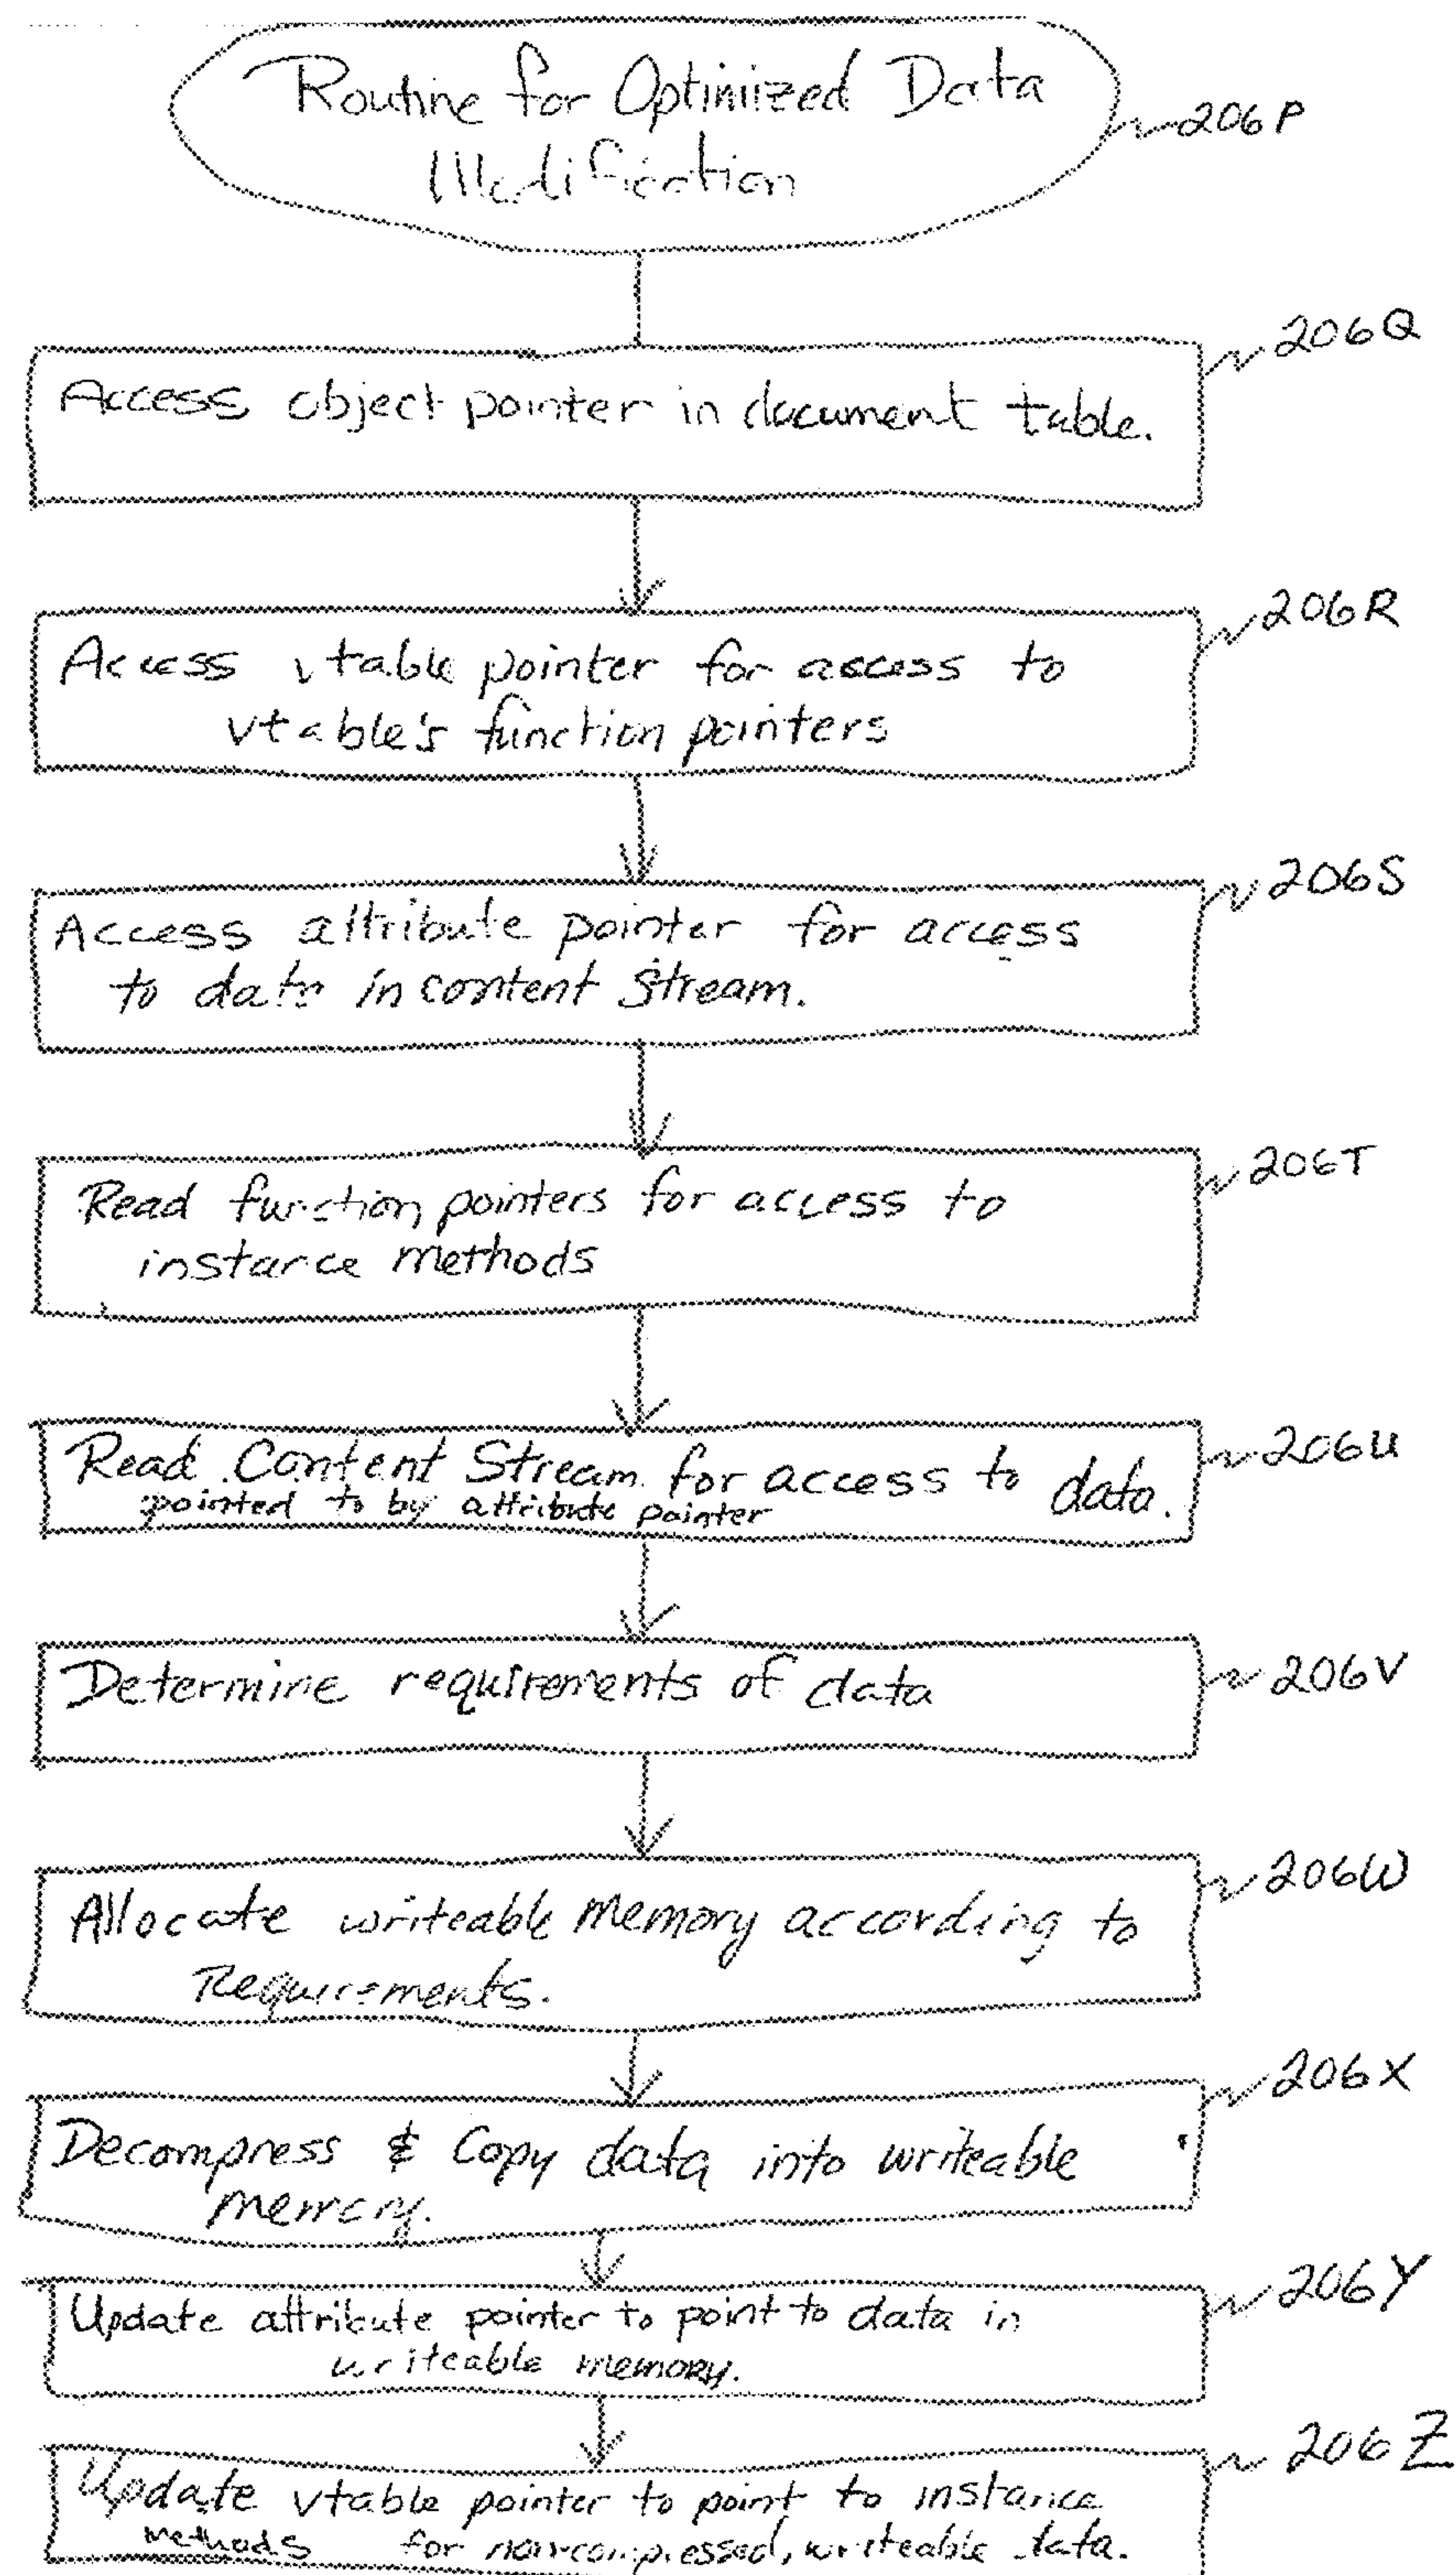 Routine for Optimized Data
Modification
206P
206Q
Access object pointer in document table.
206R
Access vtable pointer for access to
vtable's function pointers
206S
Access attribute pointer for access
to data in content stream.
206T
Read function pointers for access to
instance methods
206U
Read Content Stream for access to data.
pointed to by attribute pointer
206V
Determine requirements of data
206W
Allocate writeable memory according to
Requirements.
206X
Decompress & Copy data into writeable
memory.
206Y
Update attribute pointer to point to data in
writeable memory.
206Z
Update vtable pointer to point to instance
methods for non-compressed, writeable data.